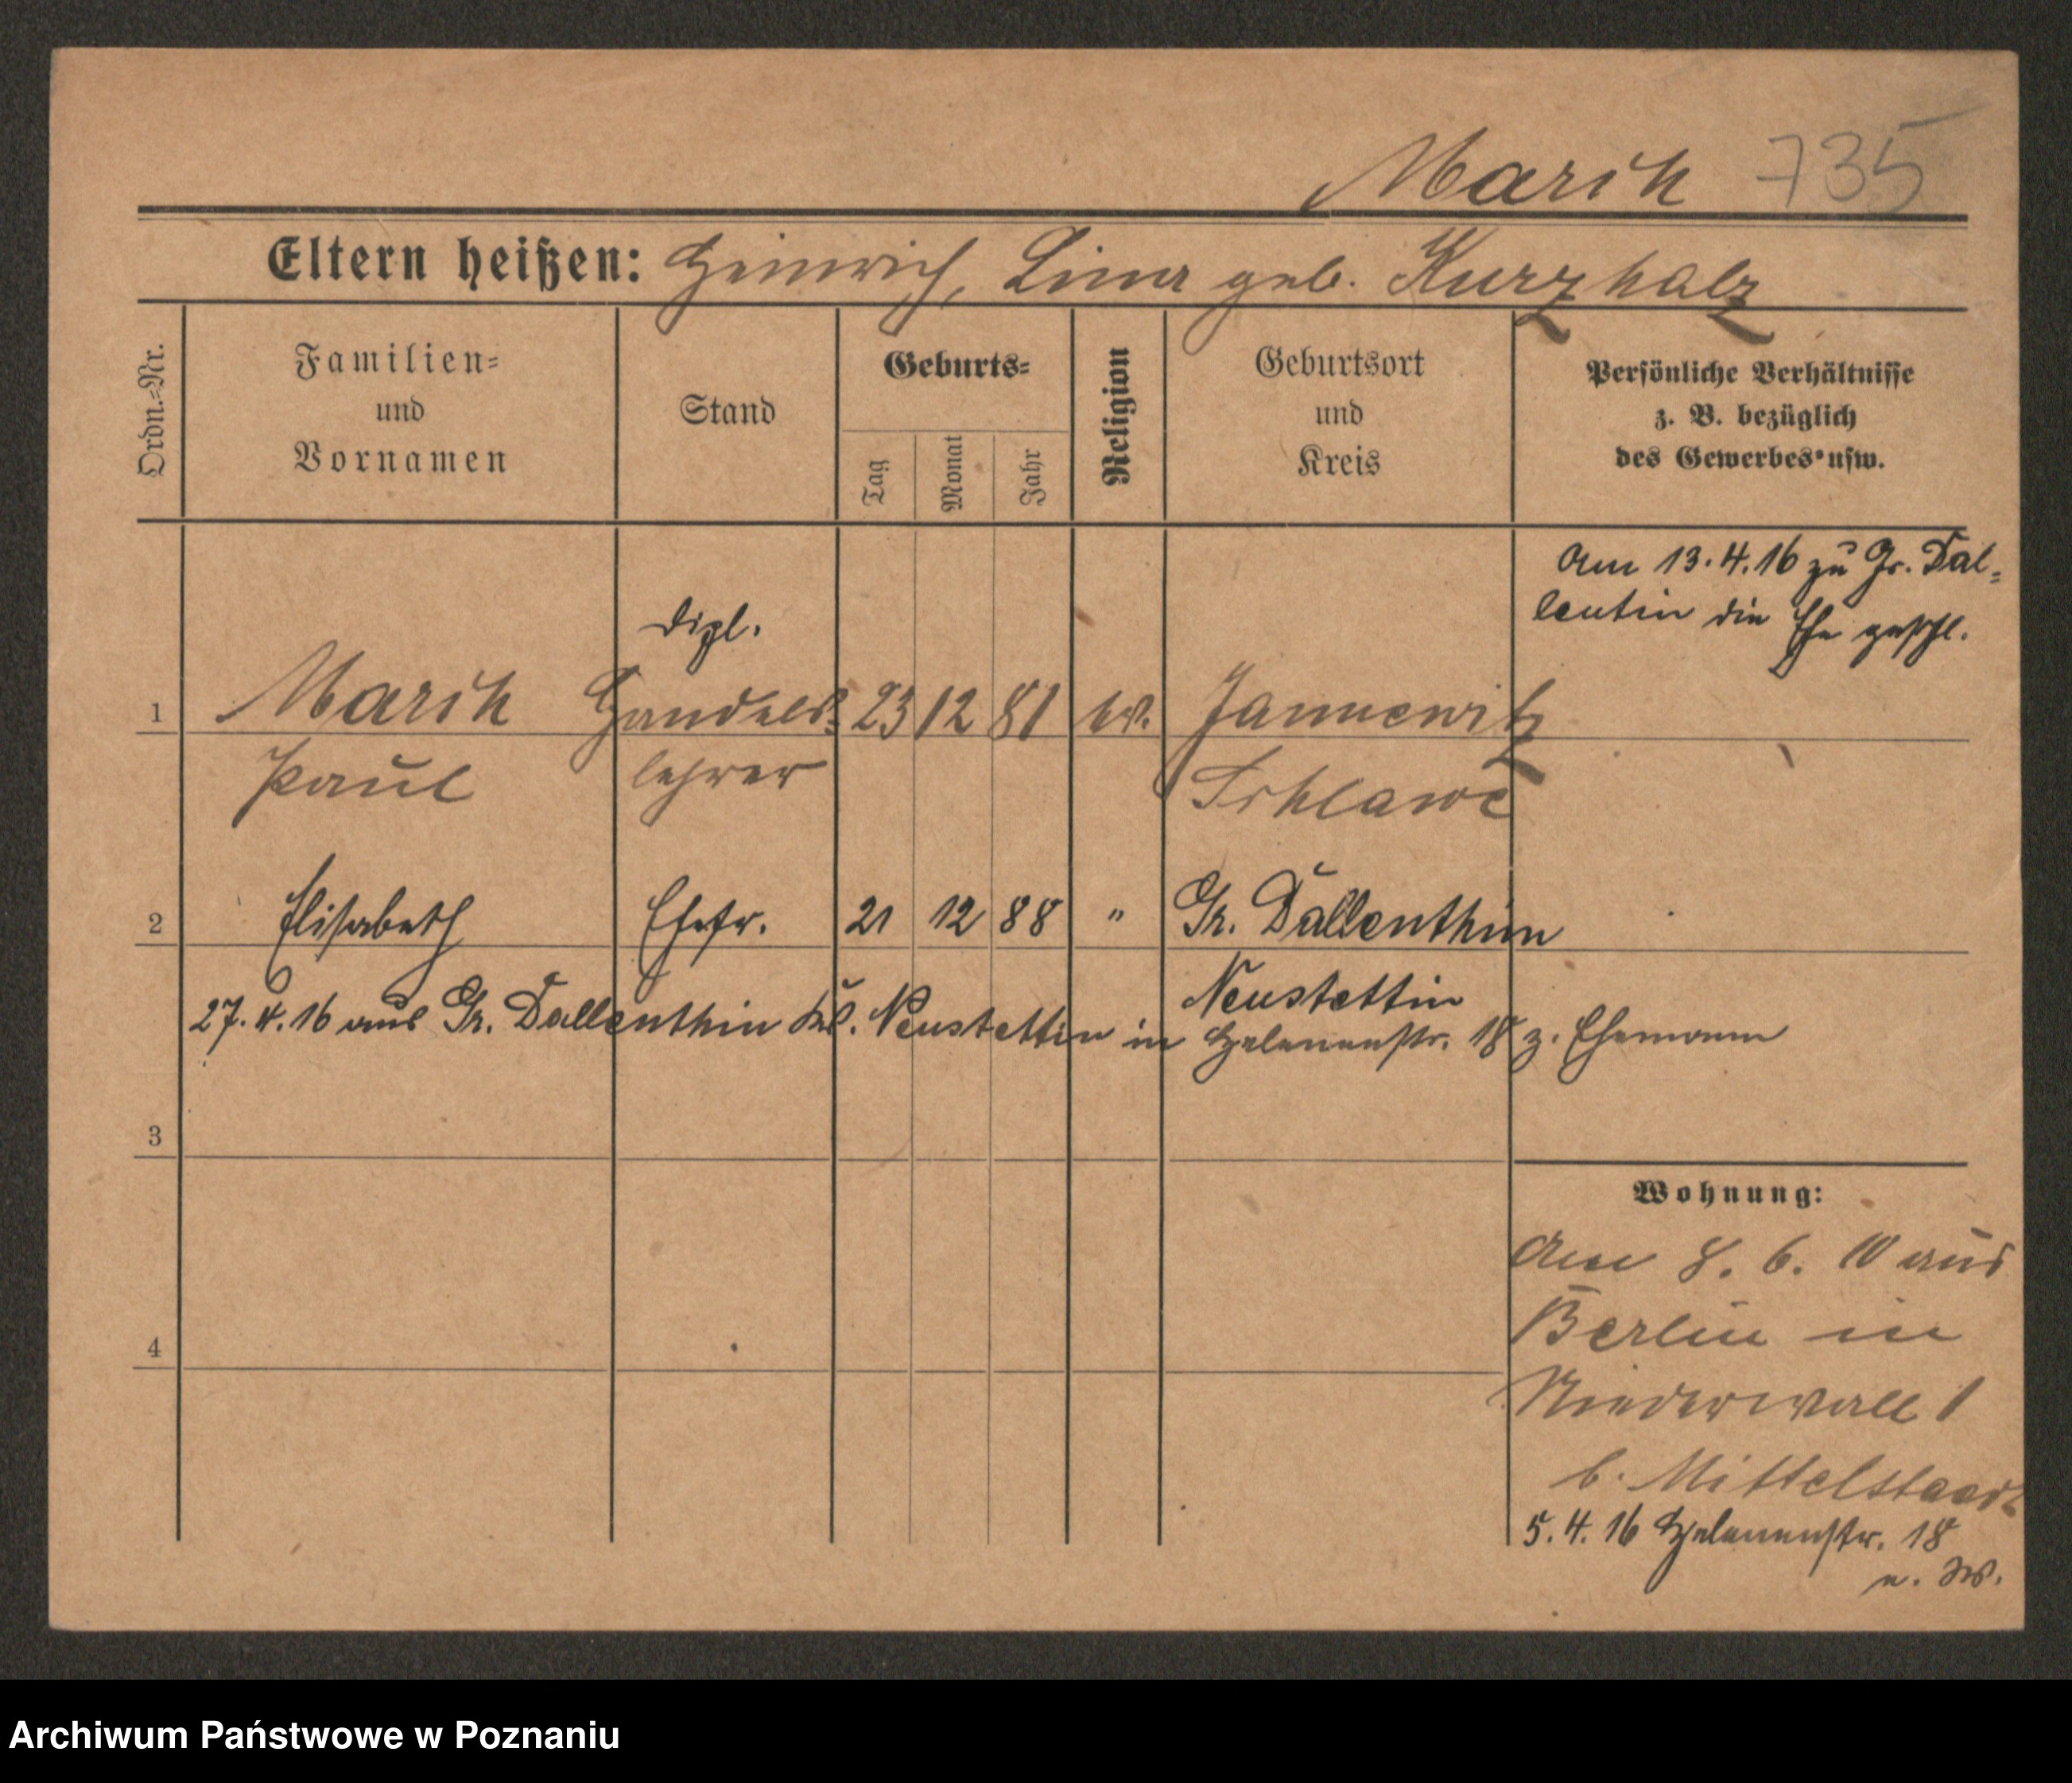 Marik 735
Eltern heißen: Heinrich, Lina geb. Kurzhalz
Ordn.-Nr.
Familien-
und
Vornamen
Stand
Geburts-
Tag
Monat
Jahr
Religion
Geburtsort
und
Kreis
Persönliche Verhältnisse
z. B. bezüglich
des Gewerbes usw.
Am 13.4.16 zu Gr. Dal-
lentin die Ehe geschl.
dipl.
1 Marik Handels- 23 12 81 ev. Jannewitz
Paul lehrer Schlawe
2 Elisabeth Ehefr. 21 12 88 " Gr. Dallenthin
Neustettin
27.4.16 aus Gr. Dallenthin Krs. Neustettin in Helenenstr. 18 z. Ehemann
3
Wohnung:
Am 8. 6. 10 aus
Berlin in
4
Niederwall 1
b. Mittelstaedt
5.4.16 Helenenstr. 18
Archiwum Państwowe w Poznaniu